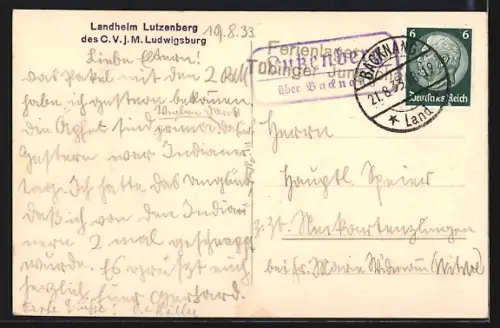 Landheim Lutzenberg
des C.V.j.M. Ludwigsburg
19.8.33
Liebe Eltern!
Das Paket mit den 2 RM
habe ich gestern bekommen
Vielen Dank
die Äpfel sind prima.
Gestern war Indianer
tag. Ich hatte das Unglück
daß ich von den Indian
nern 2 mal geschnappt
wurde. Es grüßt euch
herzlich Euer Gerhard.
Ferienlager
Tübinger
Lutzenberg
über Backnang
BACKNANG
21.8.33
Land
6 6
Deutsches Reich
Herrn
Hauptl. Speier
z. Zt. Neckartenzlingen
bei Fr. Marie (Witwe)